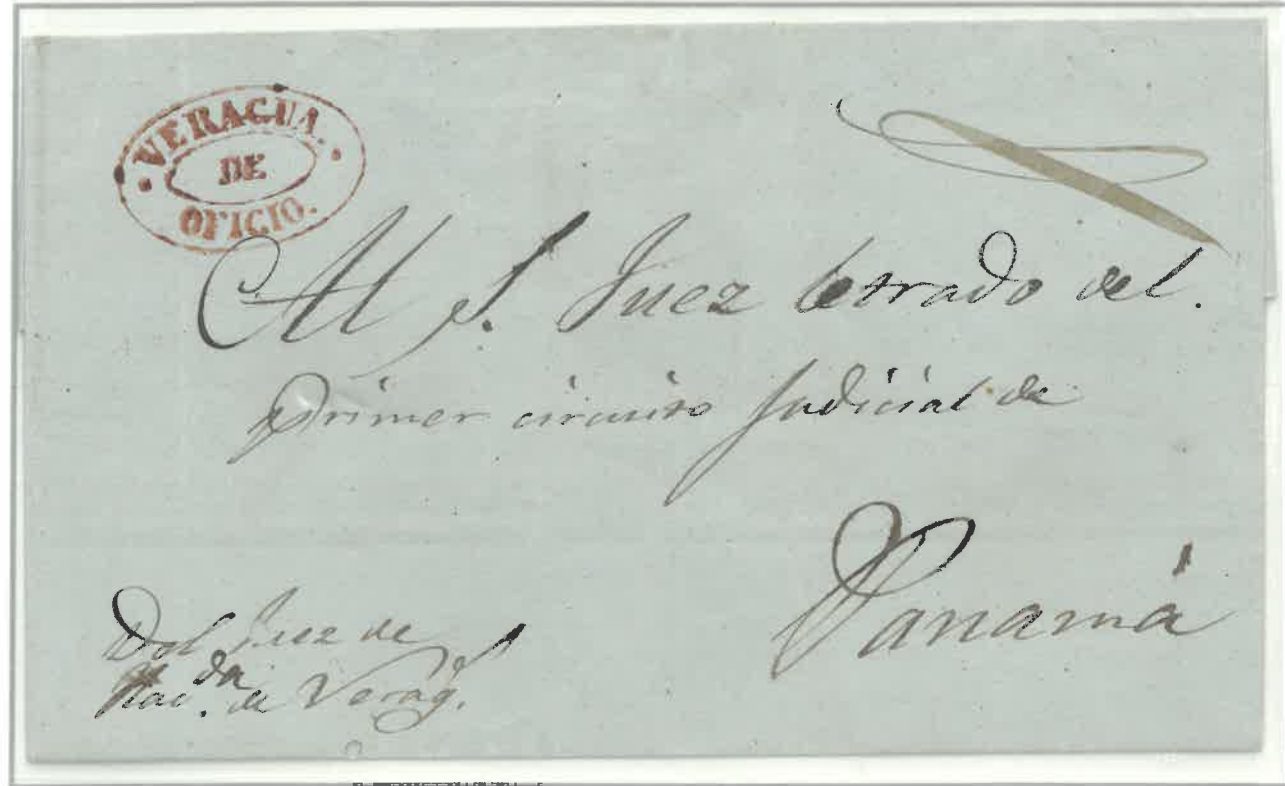 ·VERAGUA.·
DE
OFICIO.
Al S. Juez letrado del.
Primer circuito Judicial de
Panamá
Del Juez de
Hac.da de Verag.s